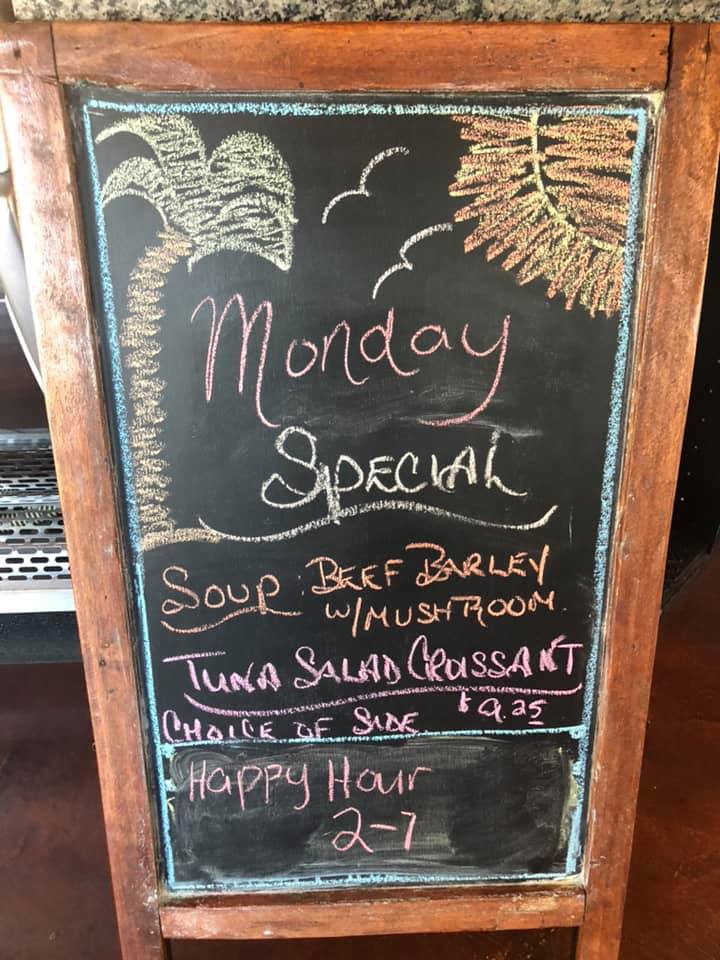 Monday
SPECIAL
SOUP: BEEF BARLEY
W/MUSHROOM
TUNA SALAD CROISSANT
CHOICE OF SIDE $9.25
Happy Hour
2-7